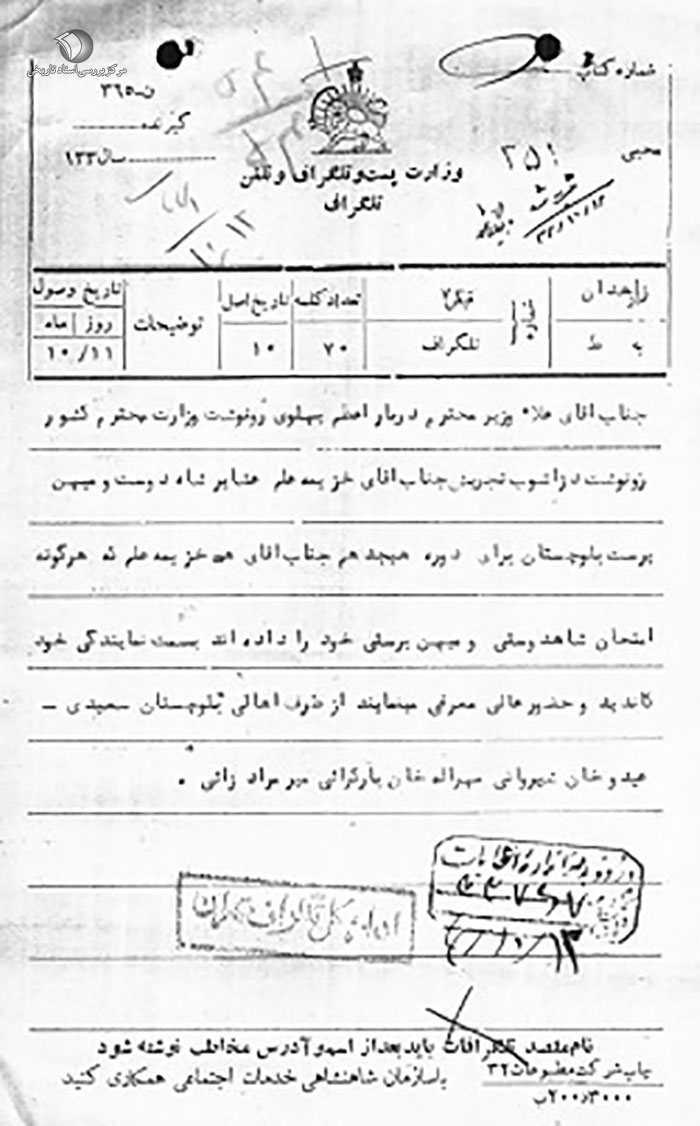 مرکز بررسی اسناد تاریخی
شماره کتاب
ن-۳۶۵
گیرنده
سال ۱۳۳
محبی
۲۵۱
وزارت پست و تلگراف و تلفن
تلگرافی
زاهدان
به ط
شماره
تلگراف
تعداد کلمه
۷۰
تاریخ اصل
۱۰
توضیحات
تاریخ وصول
روز ماه
۱۰/۱۱
جناب اقای علاء وزیر محترم دربار اعظم پهلوی رونوشت وزارت محترم کشور
رونوشت دزاشوب تجریش جناب اقای خزیمه علم عشایر شاه دوست و میهن
پرست بلوچستان برای دوره هیجدهم جناب اقای خزیمه علم که هرگونه
امتحان شاهدوستی و میهن پرستی خود را داده اند بسمت نمایندگی خود
کاندید و حضور عالی معرفی مینمایند از طرف اهالی بلوچستان سعیدی –
عیدو خان شیروانی مهراله خان بارکزائی میر مراد زائی .
۱۰/۱۳
اداره کل تلگراف تهران
نام مقصد تلگرافات باید بعد از اسم و آدرس مخاطب نوشته شود
چاپ شرکت مطبوعات ۳۲
با سازمان شاهنشاهی خدمات اجتماعی همکاری کنید
۲۰۰٫۳۰۰۰ب